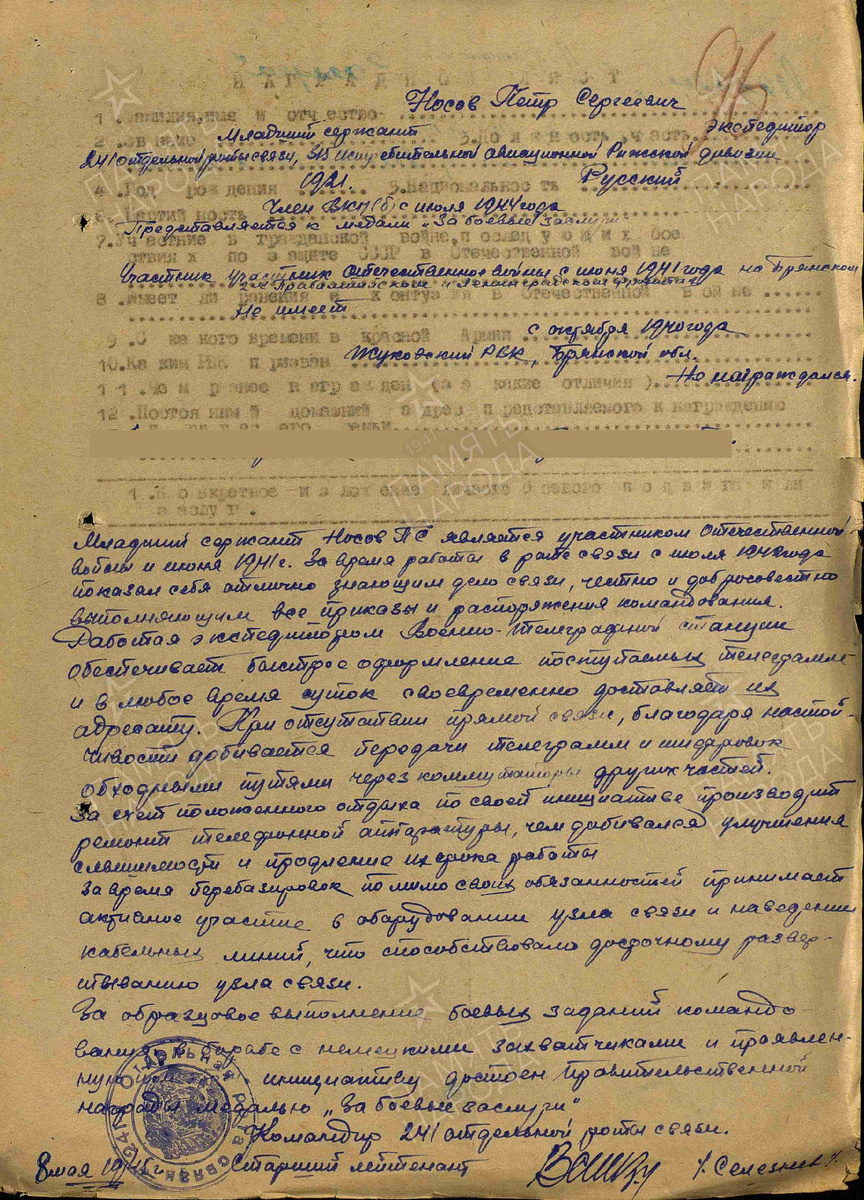 НАГРАДНОЙ ЛИСТ
95
1. Фамилия, имя и отчество- Носов Петр Сергеевич
2. Звание Младший сержант 3. Должность, часть экспедитор
241 отдельной роты связи, 315 истребительной авиационной Рижской дивизии
4. Год рождения 1921. 5. Национальность Русский
6. Партийность Член ВКП(б) с июля 1944 года
Представляется к медали „За боевые заслуги"
7. Участие в гражданской войне, последующих боевых
действиях по защите СССР в Отечественной войне
Участник Участник Отечественное войны с июня 1941 года на Брянском
2-м Прибалтийском и Ленинградском фронтах
8. Имеет ли ранения и контузия в Отечественной войне
Не имеет
9. С какого времени в красной Армии с октября 1940 года
10. Каким РВК призван Жуковский РВК, Брянской обл.
11. Чем ранее награжден (за какие отличия) Не награждался.
12. Постоянный домашний адрес представляемого к награждению
семьи
1. Конкретное изложение личного боевого подвига или
заслуг.
Младший сержант Носов ПС является участником Отечественной
войны и июня 1941 г. За время работы в роте связи с июля года
показал себя отлично знающим дело связи, честно и добросовестно
выполняющим все приказы и распоряжения командования.
Работая экспедитором Военно-телеграфной станции
обеспечивает быстрое оформление поступаемых телеграмм
и в любое время суток своевременно доставляет их
адресату. При отсутствии прямой связи, благодаря настой-
чивости добивается передачи телеграмм и шифровок
обходными путями через коммутаторы других частей.
За счет положенного отдыха по своей инициативе производит
ремонт телефонной аппаратуры, чем добивался улучшения
слышимости и продление их срока работы
За время перебазировок помимо своих обязанностей принимает
активное участие в оборудовании узла связи и наведении
кабельных линий, что способствовало досрочному развер-
тыванию узла связи.
За образцовое выполнение боевых заданий командо-
вания в борьбе с немецкими захватчиками и проявлен-
ную инициативу достоен правительственной
награды медалью „За боевые заслуги"
Командир 241 отдельной роты связи.
8 мая 1945 г. Старший лейтенант /Селезнев/
241 ОТДЕЛЬНАЯ РОТА СВЯЗИ
ПАМЯТЬ НАРОДА